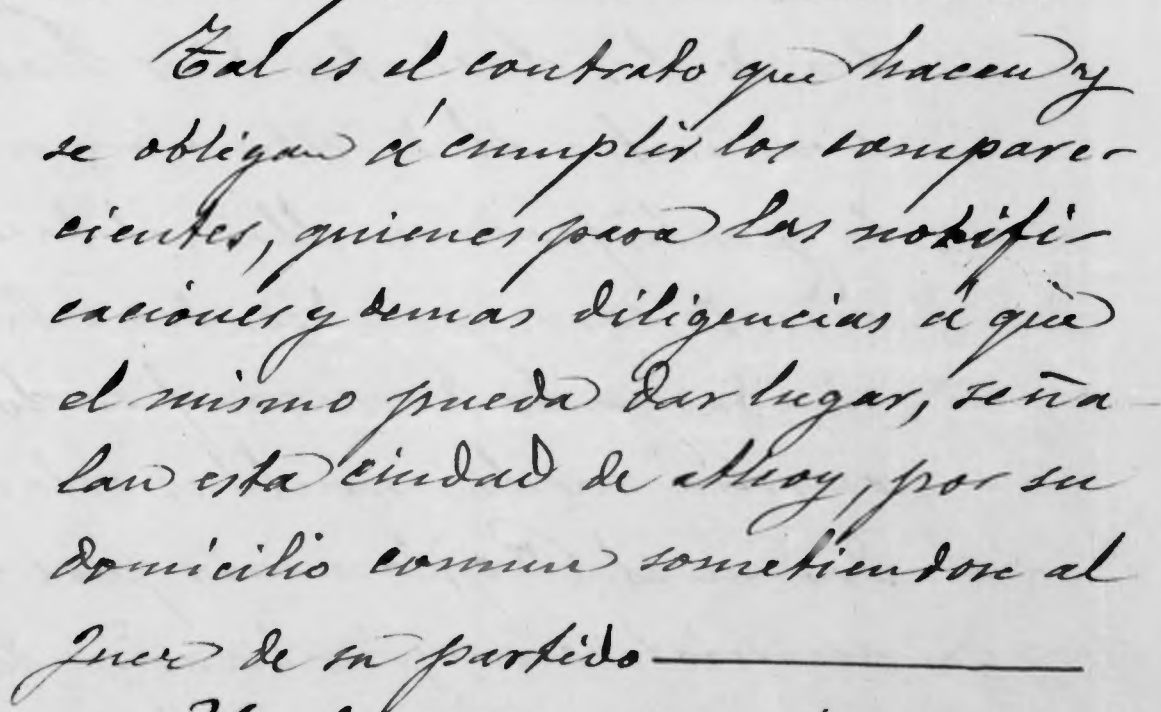 Tal es el contrato que hacen y
se obligan á cumplir los compare-
cientes, quienes para las notifi-
caciónes y demas diligencias á que
el mismo pueda dar lugar, seña-
lan esta ciudad de Alcoy, por su
domicilio comun sometiendose al
Juez de su partido